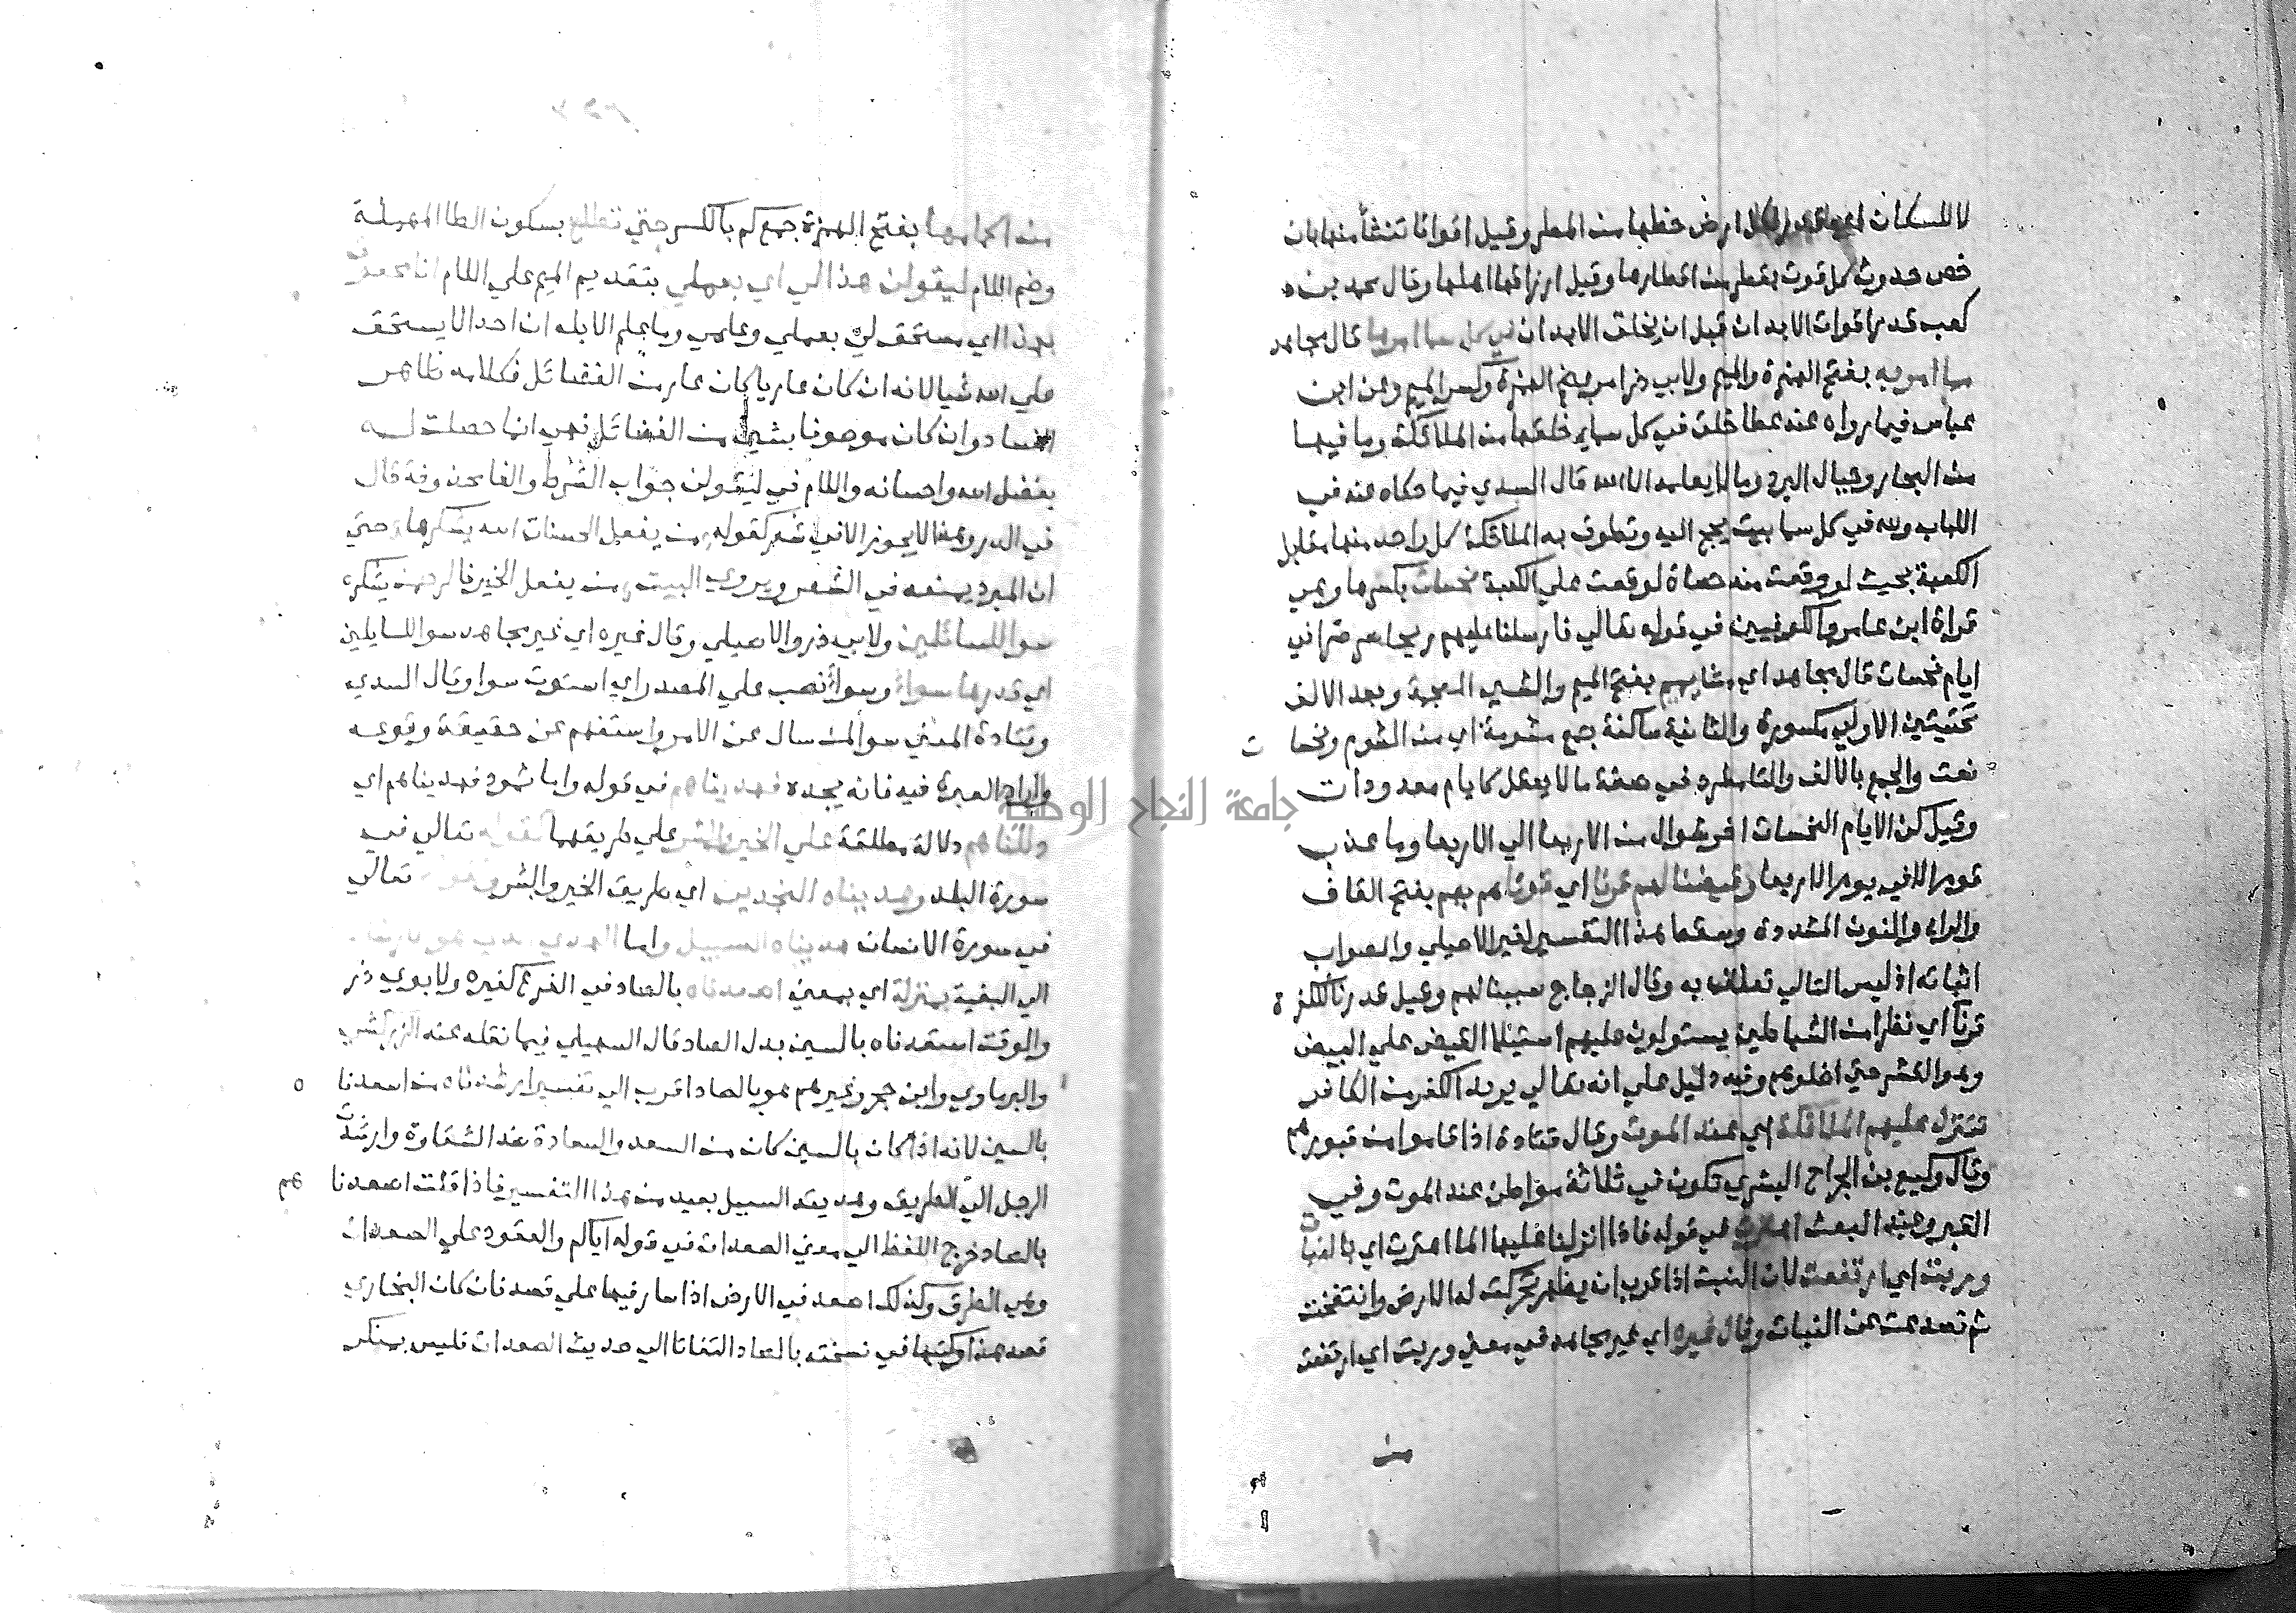 لا للسكان اي قدر لكل ارض حظها من المطر وقيل اقواتا تنشأ منها بان
خص حدوث كل قوت بقطر من اقطارها وقيل ارزاقها اهلها وقال محمد بن
كعب قدر اقوات الابدان قبل ان يخلق الابدان في كل سما امرها قال مجاهد
مما امر به بفتح الهمزة والميم ولابي ذر امر بضم الهمزة وكسر الميم وعن ابن
عباس فيما رواه عنه عطا خلق في كل سما خلقها من الملائكة وما فيها
من البحار وجبال البرد وما لا يعلمه الا الله قال السدي فيما حكاه عنه في
اللباب ولله في كل سما بيت يحج اليه وتطوف به الملائكة كل واحد منها مقابل
الكعبة بحيث لو وقعت منه حصاة لوقعت علي الكعبة نحسات بكسرها وهي
قراة ابن عامر والكوفيين في قوله تعالي فارسلنا عليهم ريحا صرصرا في
ايام نحسات قال مجاهد اي مشايهم بفتح الميم والشين المعجمة وبعد الالف
تحتيتين الاولي مكسورة والثانية ساكنة جمع مشومة اي من الشوم ونحسا ت
نعت والجمع بالالف والتا مطرد في صفة ما لا يعقل كايام معدودات
وقيل كن الايام النحسات اخر شوال من الاربعا الي الاربعا وما عذب
قوم الا في يوم الاربعا وقيضنا لهم قرنا اي قرناهم بهم بفتح القاف
والراء والنون المشددة وسقط هذا التفسير لغير الاصيلي والصواب
اثباته اذ ليس التالي تعلق به وقال الزجاج سببنا لهم وقيل قدرنا للكفرة
قرنا اي نظرا من الشياطين يستولون عليهم استيلا القيض علي البيض
وهو القشر حتي اضلوهم وفيه دليل علي انه تعالي يريد الكفر من الكافر
تتنزل عليهم الملائكة اي عند الموت وقال قتادة اذا قاموا من قبورهم
وقال وكيع بن الجراح البشري تكون في ثلاثة مواطن عند الموت وفي
القبر وعند البعث اهتزت في قوله فاذا انزلنا عليها الما اهتزت اي بالنبات
وربت اي ارتفعت لان النبت اذا قرب ان يظهر تحركت له الارض وانتفخت
ثم تصدعت عن النبات وقال غيره اي غير مجاهد في معني وربت اي ارتفعت
من
من اكمامها بفتح الهمزة جمع كم بالكسر حتي تطلع بسكون الطا المهملة
وضم اللام ليقولن هذا لي اي بعملي بتقديم الميم علي اللام انا محقوق
بهذا اي مستحق لي بعملي وعلمي وما علم الابله ان احدا لا يستحق
علي الله شيا لانه ان كان عاريا كان عار من الفضائل فكلامه ظاهر
الفساد وان كان موصوفا بشي من الفضائل فهي انما حصلت له
بفضل الله واحسانه واللام في ليقولن جواب الشرط والفا محذوفة قال
في الدر وهذا لا يجوز الا في شعر كقوله من يفعل الحسنات الله يشكرها حتي
ان المبرد يمنعه في الشعر ويروي البيت من يفعل الخير فالرحمن يشكره
سوا للسائلين ولابي ذر والاصيلي وقال غيره اي غير مجاهد سوا للسايلين
اي قدرها سواء وسواء نصب علي المصدر اي استوت سوا وقال السدي
وقتادة المعني سوا لمن سال عن الامر واستفهم عن حقيقة وقوعه
واراد العبرة فيه فانه يجده فهديناهم في قوله واما ثمود فهديناهم اي
دللناهم دلالة مطلقة علي الخير والشر علي طريقهما كقوله تعالي في
سورة البلد وهديناه النجدين اي طريق الخير والشر وقوله تعالي
في سورة الانسان هديناه السبيل واما الهدي الذي هو الارشاد
الي البغية بمنزلة اي بمعني اصعدناه بالصاد في الفرع كغيره ولابوي ذر
والوقت اسعدناه بالسين بدل الصاد قال السهيلي فيما نقله عنه الزركشي
والبرماوي وابن حجر وغيرهم هو بالصاد اقرب الي تفسير ارشدناه من اسعدنا ه
بالسين لانه اذا كان بالسين كان من السعد والسعادة ضد الشقاوة وارشدت
الرجل الي الطريق وهديته السبيل بعيد من هذا التفسير فاذا قلت اصعدنا هم
بالصاد خرج اللفظ الي معني الصعدات في قوله اياكم والقعود علي الصعدات
وهي الطرق وكذلك اصعد في الارض اذا سار فيها علي قصد فان كان البخاري
قصد هذا وكتبها في نسخته بالصاد التفاتا الي حديث الصعدات فليس بمنكر
جامعة النجاح الوطنية